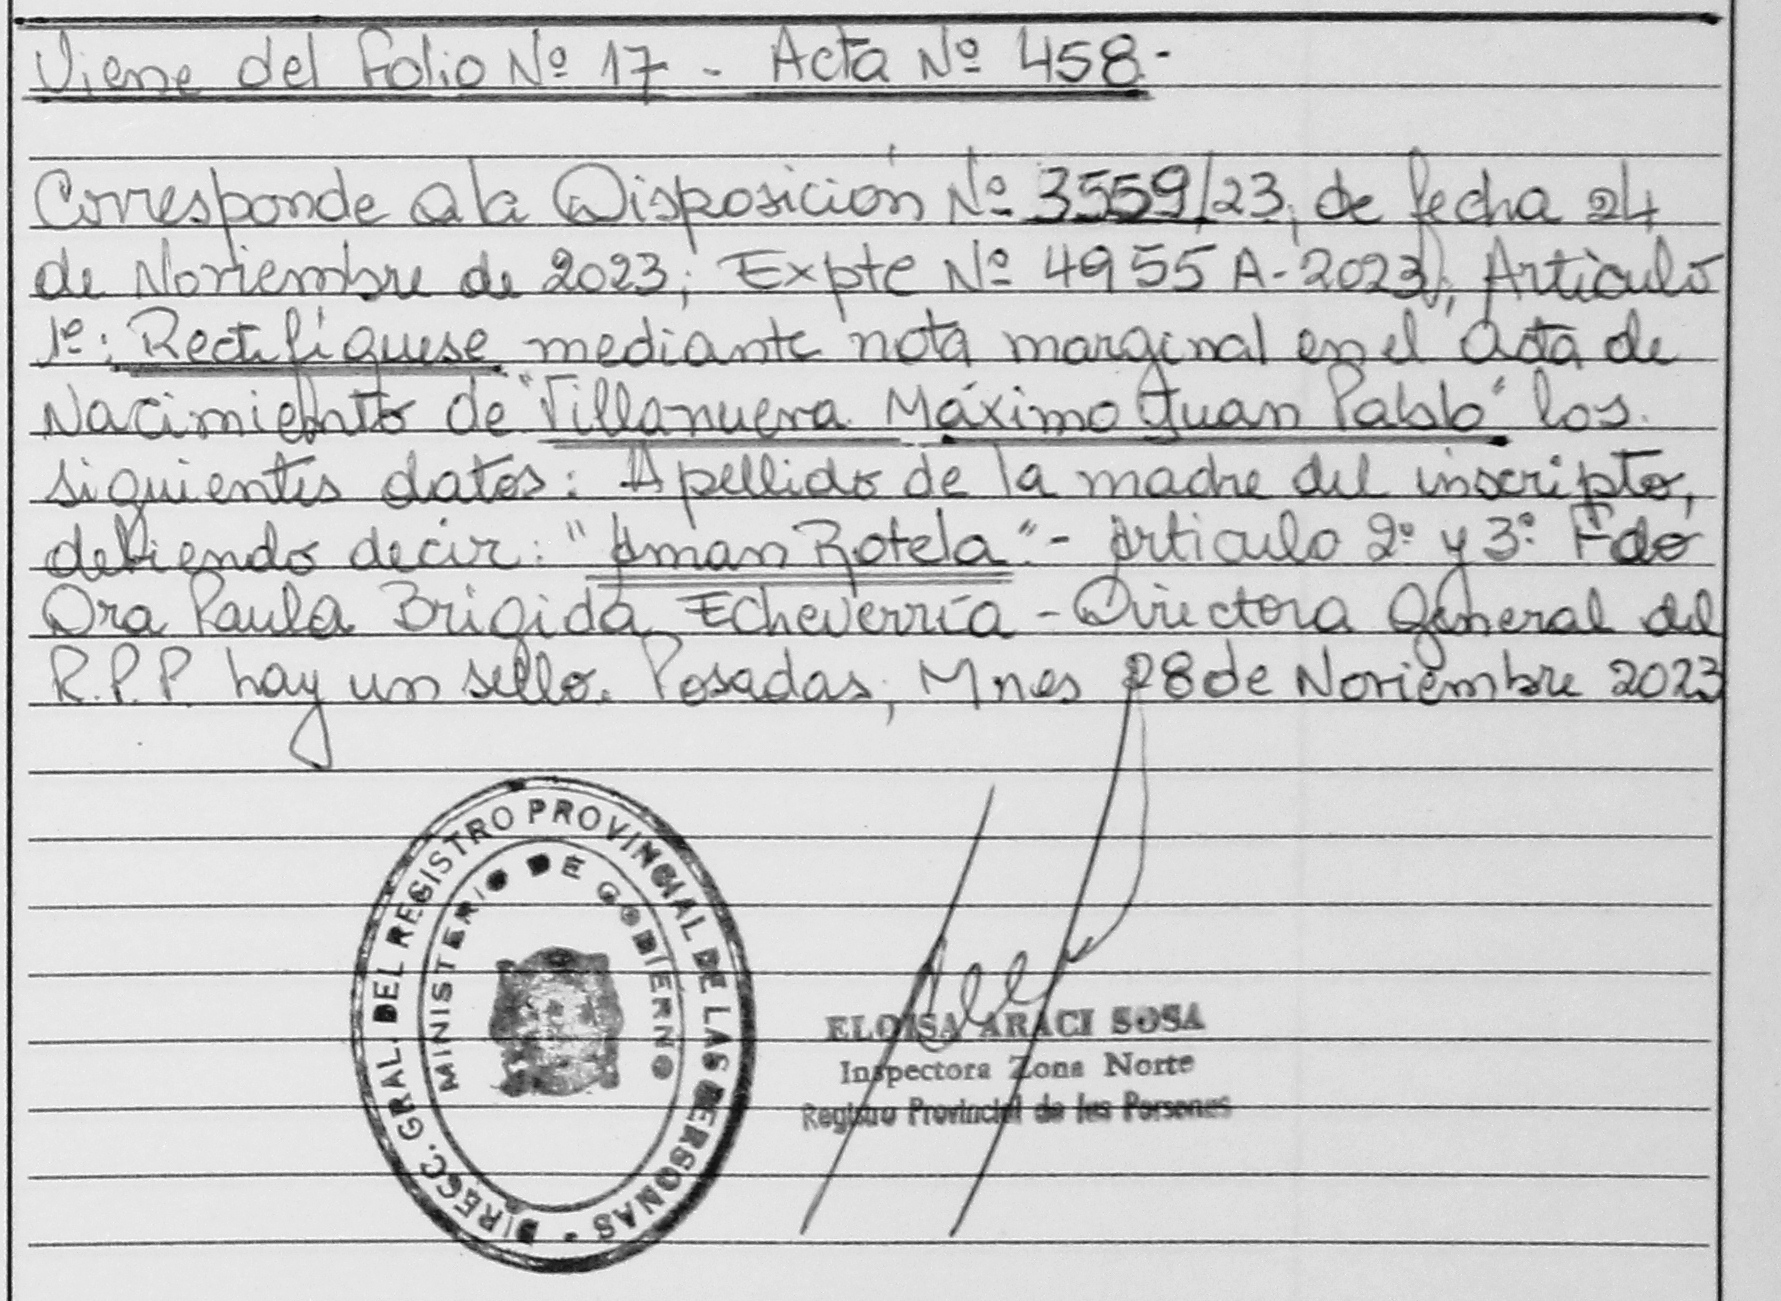 Viene del Folio Nº 17 - Acta Nº 458.-
Corresponde a la Disposición Nº 3559/23, de fecha 24
de Noviembre de 2023; Expte Nº 4955 A-2023, Articulo
1º: Rectifíquese mediante nota marginal en el Acta de
Nacimiento de "Villanueva Máximo Juan Pablo" los
siguientes datos: Apellido de la madre del inscripto,
debiendo decir: "Aman Rotela"- Articulo 2º y 3º Fdo
Dra Paula Brigida Echeverría - Directora General del
R.P.P. hay un sello. Posadas, Mnes 28 de Noviembre 2023
DIRECC. GRAL. DEL REGISTRO PROVINCIAL DE LAS PERSONAS -
MINISTERIO DE GOBIERNO
ELOISA ARACI SOSA
Inspectora Zona Norte
Registro Provincial de las Personas